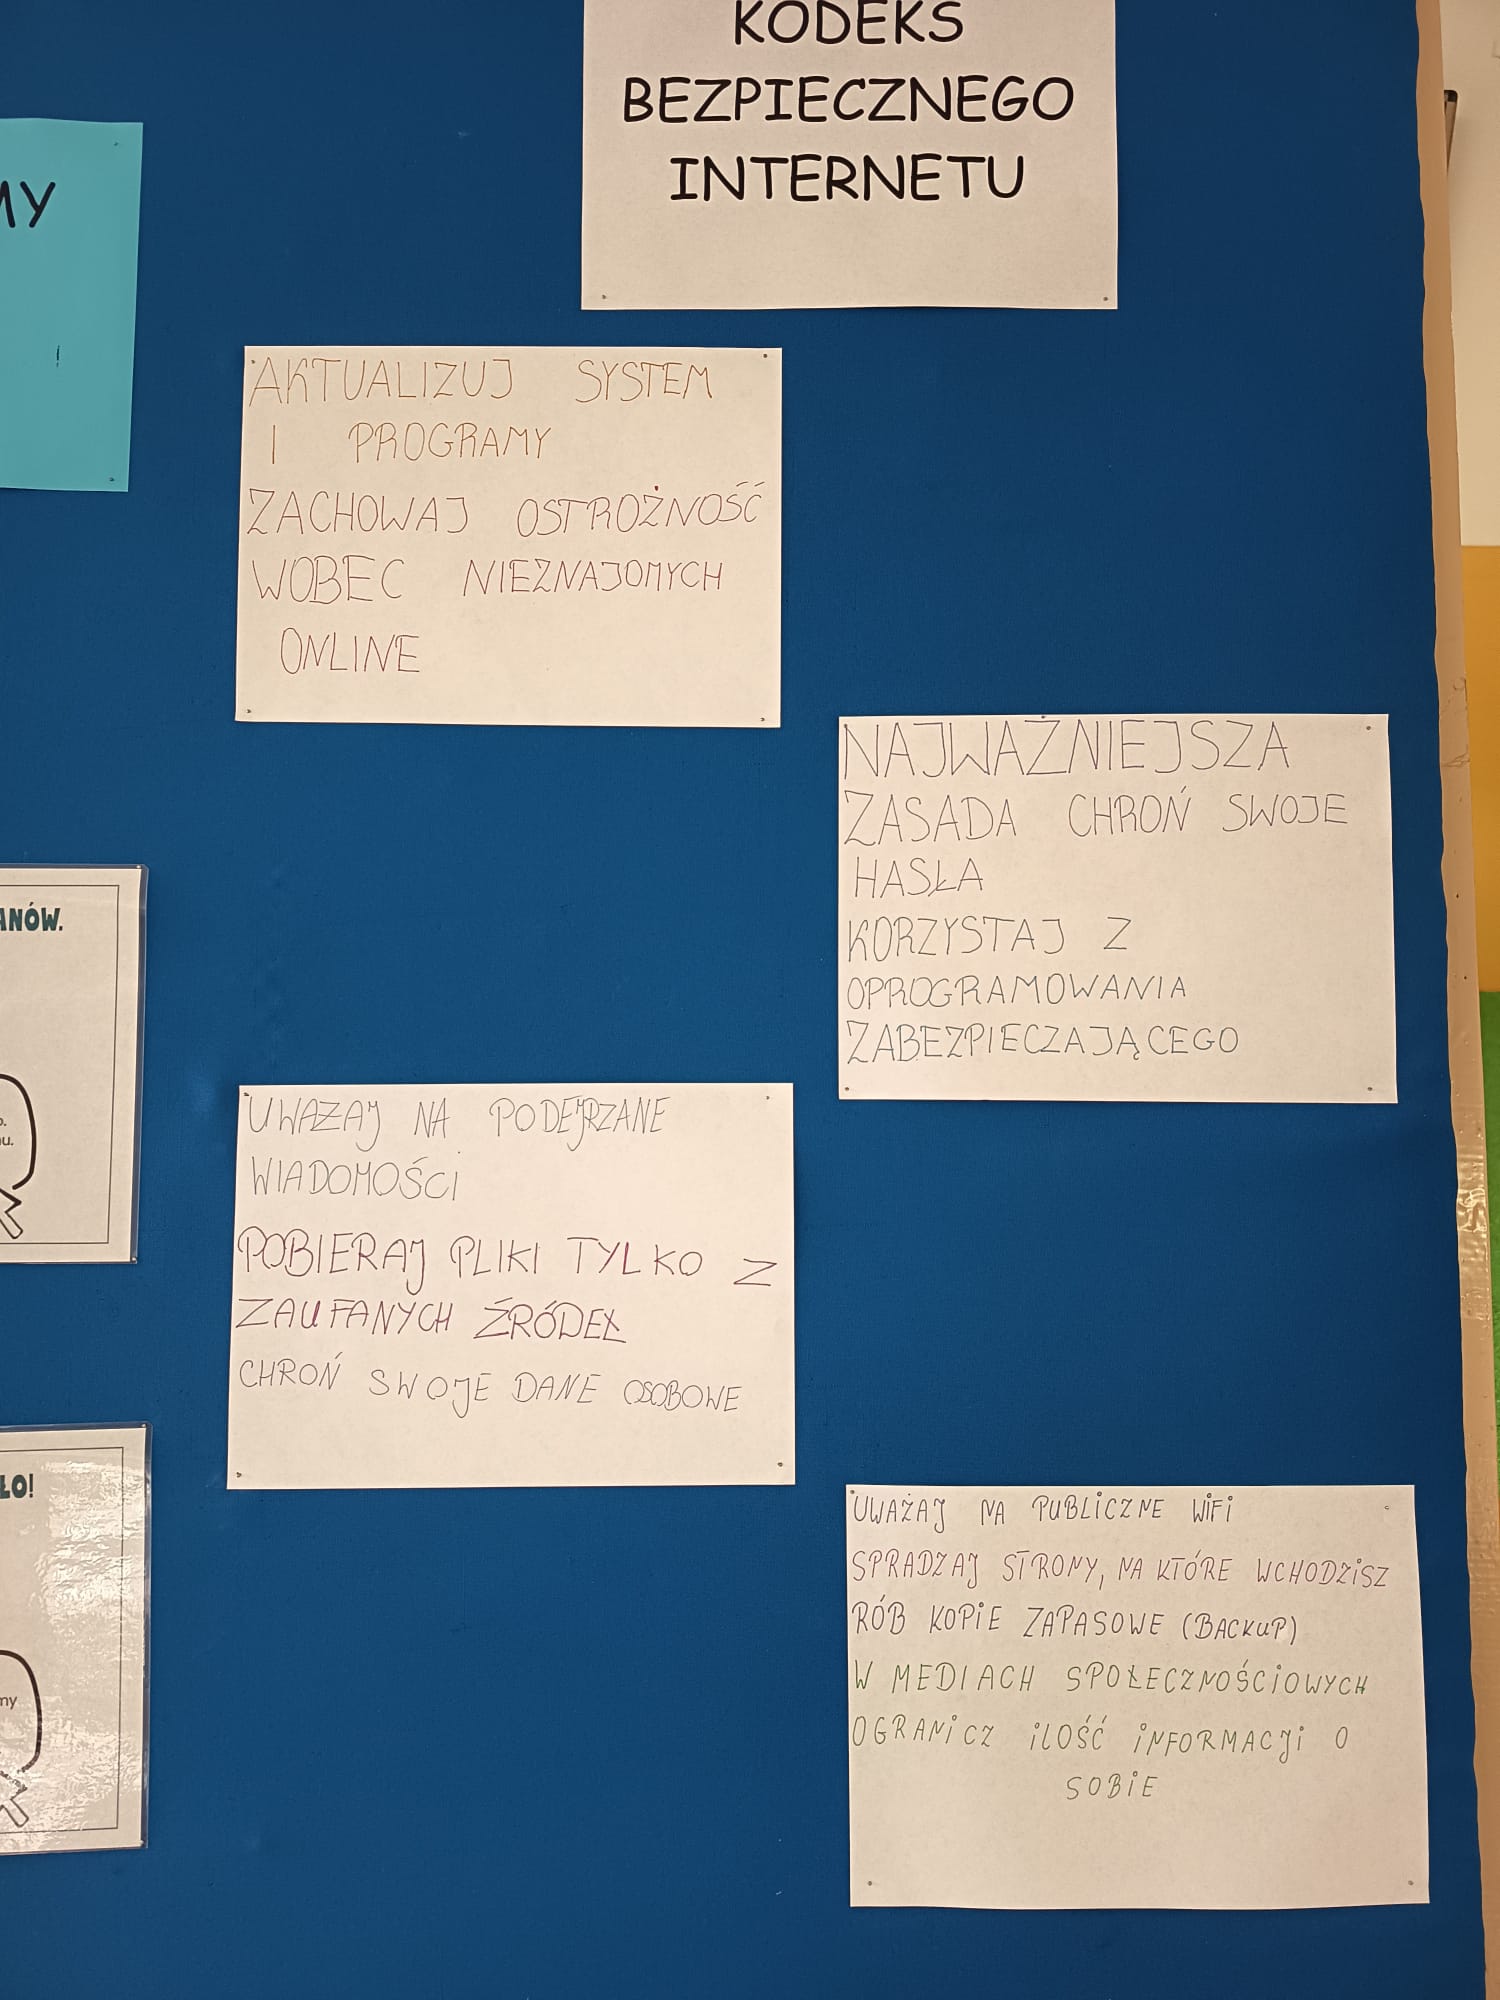 KODEKS
BEZPIECZNEGO
INTERNETU
MY
!
AKTUALIZUJ SYSTEM
I PROGRAMY
ZACHOWAJ OSTROŻNOŚĆ
WOBEC NIEZNAJOMYCH
ONLINE
NAJWAŻNIEJSZA
ZASADA CHROŃ SWOJE
HASŁA
KORZYSTAJ Z
OPROGRAMOWANIA
ZABEZPIECZAJĄCEGO
ANÓW.
UWAŻAJ NA PODEJRZANE
WIADOMOŚCI
POBIERAJ PLIKI TYLKO Z
ZAUFANYCH ŹRÓDEŁ
CHROŃ SWOJE DANE OSOBOWE
ŁO!
my
UWAŻAJ NA PUBLICZNE WIFI
SPRADZAJ STRONY, NA KTÓRE WCHODZISZ
RÓB KOPIE ZAPASOWE (BACKUP)
W MEDIACH SPOŁECZNOŚCIOWYCH
OGRANICZ ILOŚĆ INFORMACJI O
SOBIE